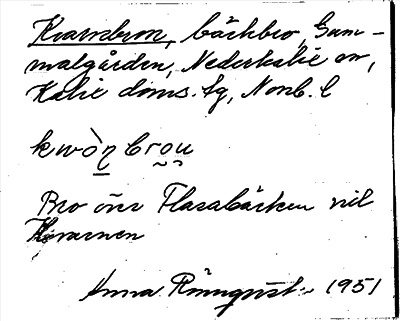 Kvarnbron, bäckbro, Gam-
malgården, Nederkalix sn,
Kalix doms. tg, Norrb. l
kwò̱n bro̮u̮
Bro över Flasabäcken vid
Kvarnen
Anna Rönnqvist 1951